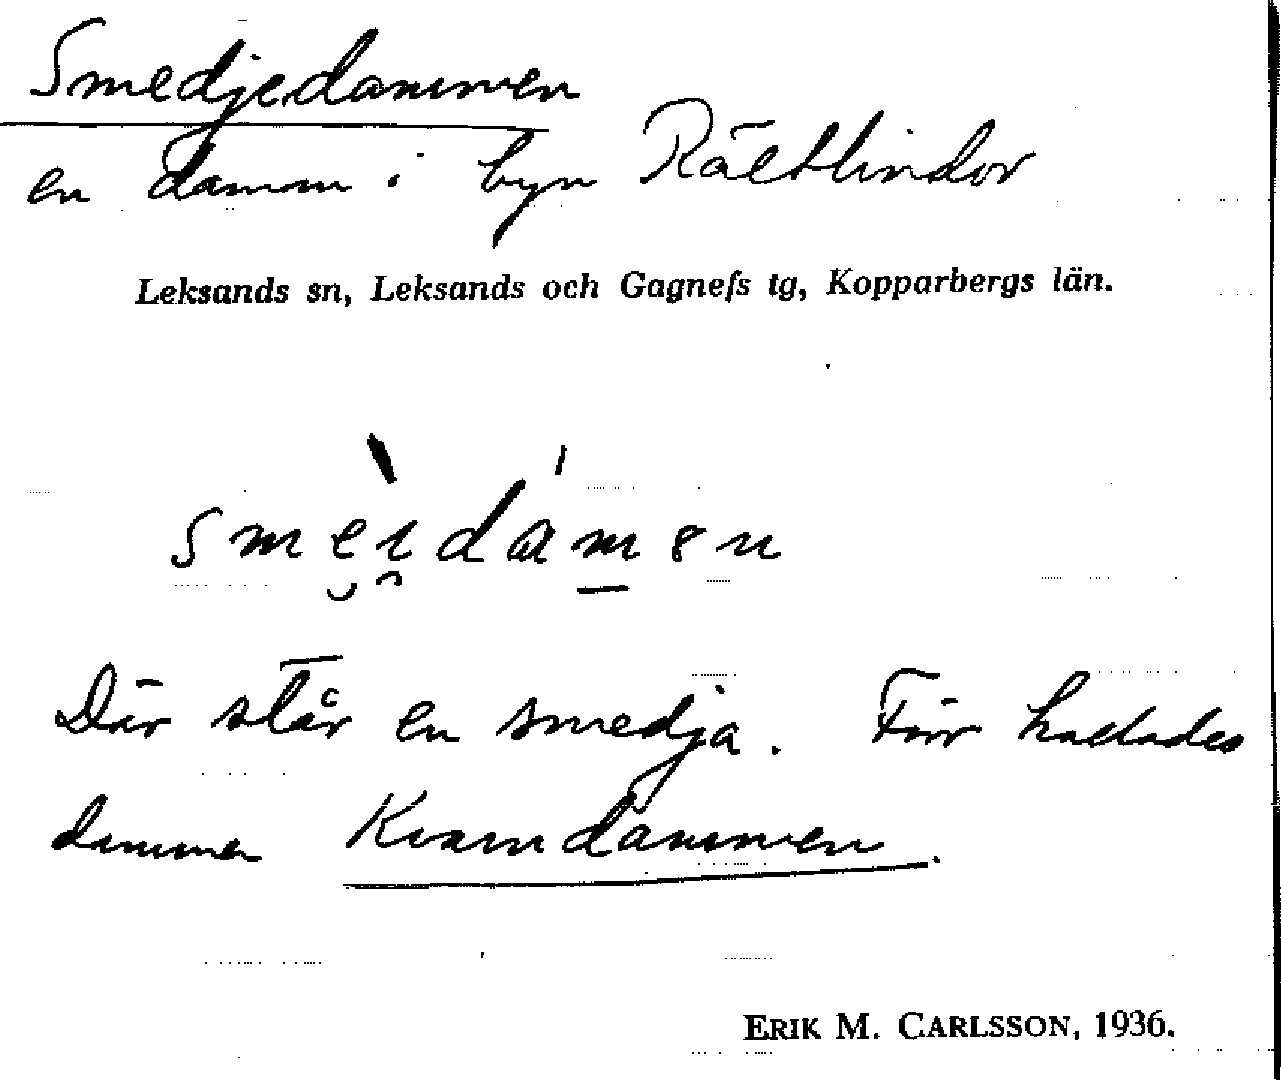 Smedjedammen
en damm i byn Rältlindor
Leksands sn, Leksands och Gagnefs tg, Kopparbergs län.
Där står en smedja. Förr kallades
dammen Kvarndammen.
ERIK M. CARLSSON, 1936.